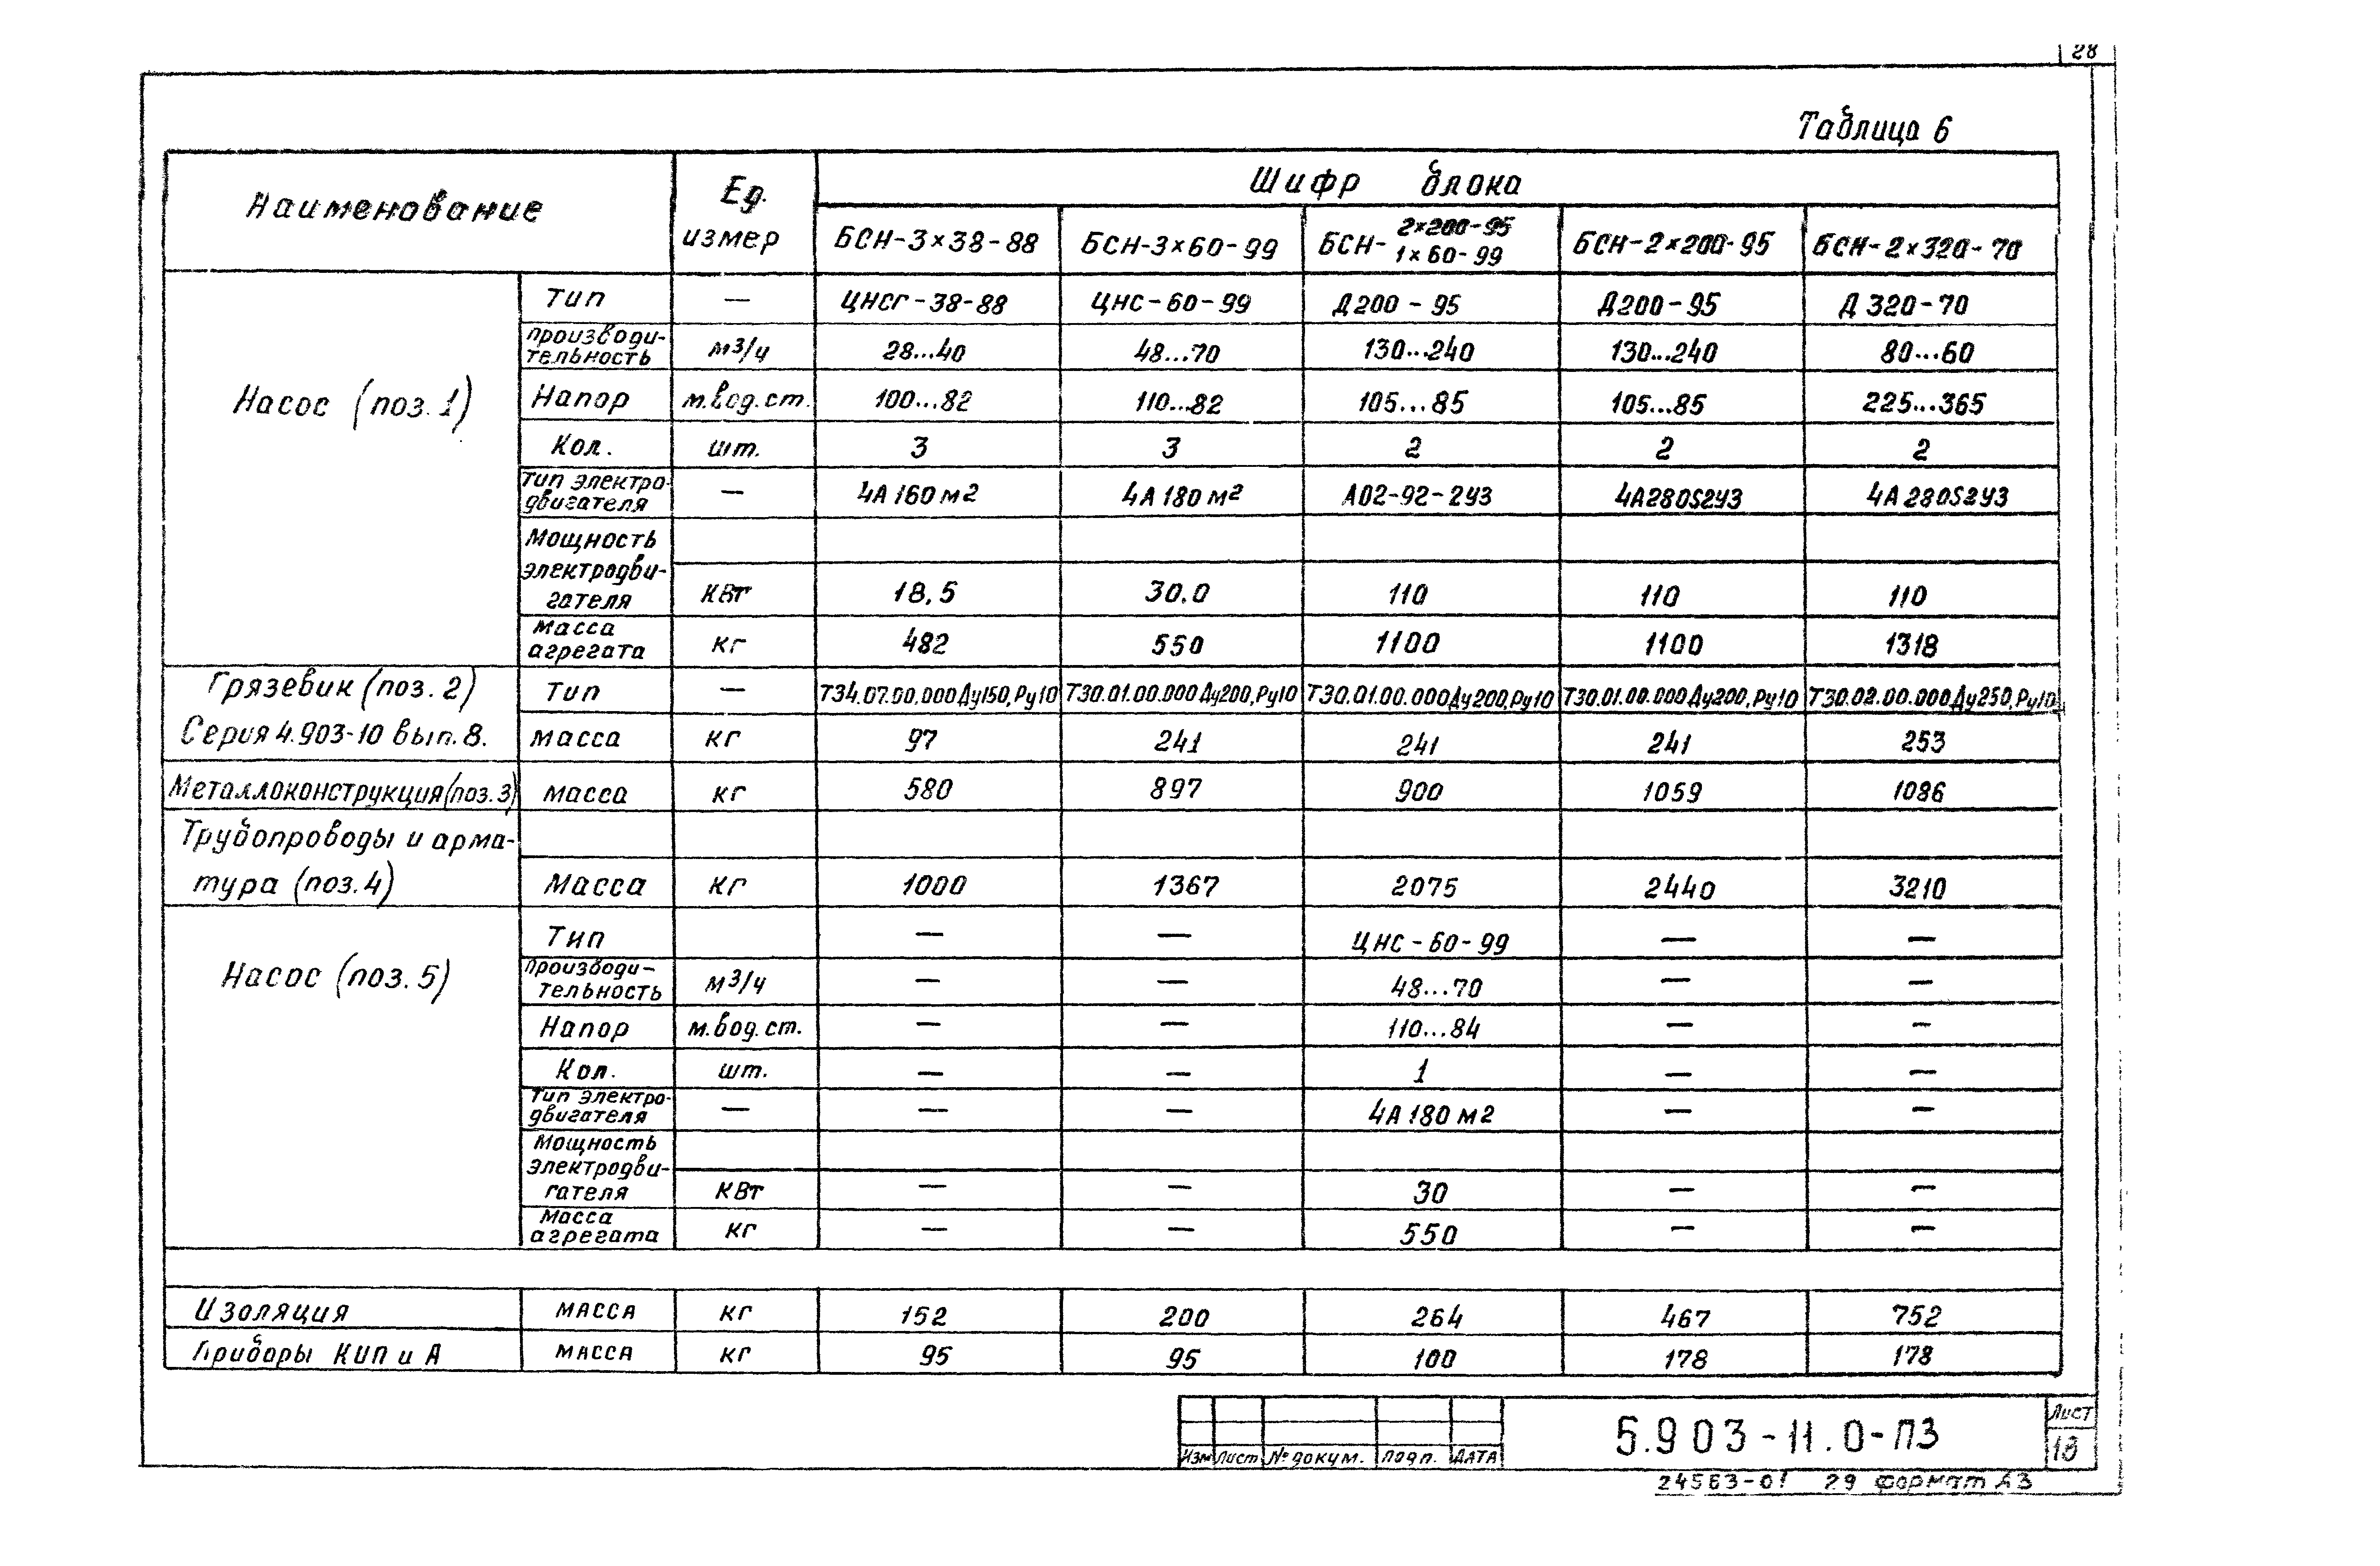 28
Таблица 6
Наименование | Ед. измер | Шифр блока
БСН-3×38-88 | БСН-3×60-99 | БСН- 2×200-95 1×60-99 | БСН-2×200-95 | БСН-2×320-70
Насос (поз.1) | Тип | — | ЦНСГ-38-88 | ЦНС-60-99 | Д200-95 | Д200-95 | Д 320-70
Производительность | м3/ч | 28...40 | 48...70 | 130...240 | 130...240 | 80...60
Напор | м.вод.ст. | 100...82 | 110...82 | 105...85 | 105...85 | 225...365
Кол. | шт. | 3 | 3 | 2 | 2 | 2
Тип электродвигателя | — | 4А160м2 | 4А180м2 | А02-92-2У3 | 4А280S2У3 | 4А280S2У3
Мощность электродвигателя | КВт | 18,5 | 30.0 | 110 | 110 | 110
Масса агрегата | кг | 482 | 550 | 1100 | 1100 | 1318
Грязевик (поз. 2) Серия 4.903-10 вып.8. | Тип | — | Т34.07.00.000Ду150,Ру10 | Т30.01.00.000Ду200,Ру10 | Т30.01.00.000Ду200,Ру10 | Т30.01.00.000Ду200,Ру10 | Т30.02.00.000Ду250,Ру10
масса | кг | 97 | 241 | 241 | 241 | 253
Металлоконструкция(поз.3) | масса | кг | 580 | 897 | 900 | 1059 | 1086
Трубопроводы и арматура (поз.4) | Масса | кг | 1000 | 1367 | 2075 | 2440 | 3210
Насос (поз.5) | Тип | — | — | ЦНС-60-99 | — | —
Производительность | м3/ч | — | — | 48...70 | — | —
Напор | м.вод.ст. | — | — | 110...84 | — | —
Кол. | шт. | — | — | 1 | — | —
Тип электродвигателя | — | — | — | 4А180м2 | — | —
Мощность электродвигателя | КВт | — | — | 30 | — | —
Масса агрегата | кг | — | — | 550 | — | —
Изоляция | масса | кг | 152 | 200 | 264 | 467 | 752
Приборы КИП и А | масса | кг | 95 | 95 | 100 | 178 | 178
Изм Лист № докум. Подп. Дата
5.903-11.0-ПЗ
Лист
18
24563-01 29 формат А3